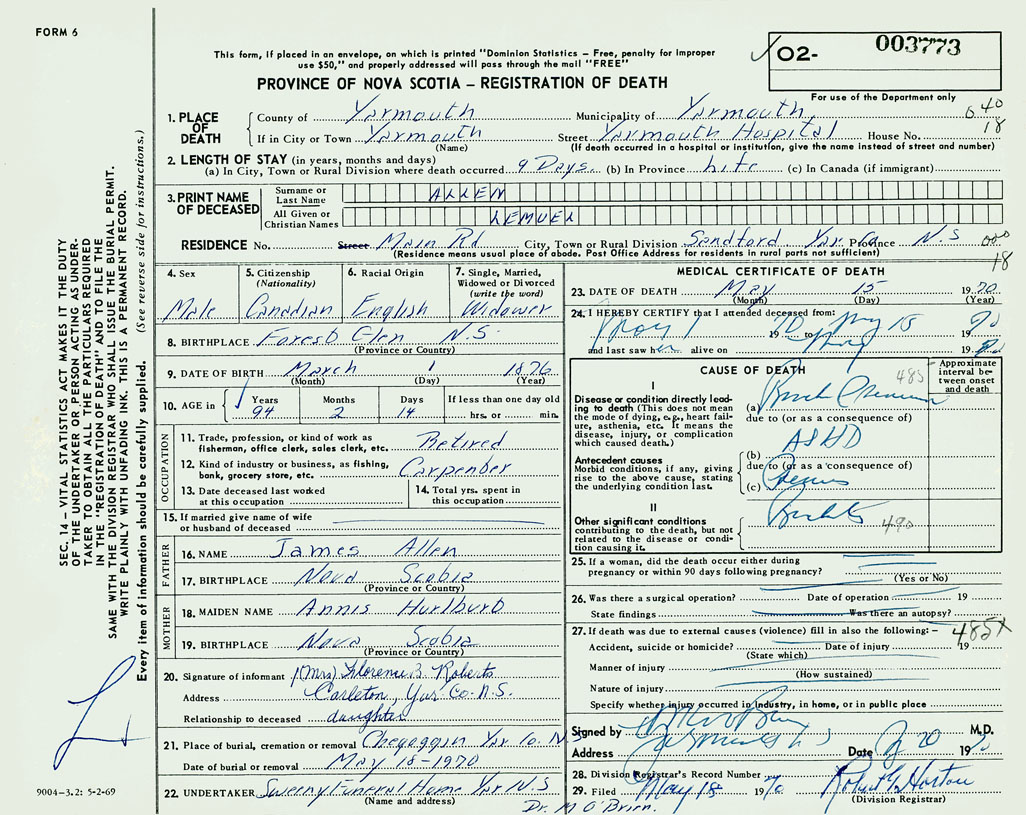 FORM 6
This form, if placed in an envelope, on which is printed "Dominion Statistics – Free, penalty for improper
use $50," and properly addressed will pass through the mail "FREE"
PROVINCE OF NOVA SCOTIA – REGISTRATION OF DEATH
02- 003773
For use of the Department only
1. PLACE OF DEATH
County of Yarmouth Municipality of Yarmouth
If in City or Town Yarmouth Street Yarmouth Hospital House No. 18
(Name) (If death occurred in a hospital or institution, give the name instead of street and number)
2. LENGTH OF STAY (in years, months and days)
(a) In City, Town or Rural Division where death occurred 9 Days (b) In Province Life (c) In Canada (if immigrant)
3. PRINT NAME OF DECEASED
Surname or Last Name ALLEN
All Given or Christian Names LEMUEL
RESIDENCE No. Street Main Rd City, Town or Rural Division Sandford Yar. Co Province N.S
(Residence means usual place of abode. Post Office Address for residents in rural parts not sufficient)
18
4. Sex Male
5. Citizenship (Nationality) Canadian
6. Racial Origin English
7. Single, Married, Widowed or Divorced (write the word) Widower
8. BIRTHPLACE Forest Glen N.S.
(Province or Country)
9. DATE OF BIRTH March 1 1876
(Month) (Day) (Year)
10. AGE in Years 94 Months 2 Days 14 If less than one day old hrs. or min.
OCCUPATION
11. Trade, profession, or kind of work as fisherman, office clerk, sales clerk, etc. Retired
12. Kind of industry or business, as fishing, bank, grocery store, etc. Carpenter
13. Date deceased last worked at this occupation
14. Total yrs. spent in this occupation
15. If married give name of wife or husband of deceased
FATHER
16. NAME James Allen
17. BIRTHPLACE Nova Scotia
(Province or Country)
MOTHER
18. MAIDEN NAME Annis Hurlburt
19. BIRTHPLACE Nova Scotia
(Province or Country)
20. Signature of informant (Mrs) Florence B. Roberts
Address Carleton, Yar Co. N.S.
Relationship to deceased daughter
21. Place of burial, cremation or removal Chegoggin Yar Co. N.S
Date of burial or removal May 18-1970
22. UNDERTAKER Sweeny Funeral Home Yar N.S
(Name and address)
Dr. M O'Brien.
MEDICAL CERTIFICATE OF DEATH
23. DATE OF DEATH May 15 1970
(Month) (Day) (Year)
24. I HEREBY CERTIFY that I attended deceased from:
May 1 1970 to May 15 1970
and last saw h alive on May 19
CAUSE OF DEATH
Approximate interval between onset and death
485
I
Disease or condition directly leading to death (This does not mean the mode of dying, e.g., heart failure, asthenia, etc. It means the disease, injury, or complication which caused death.)
(a)
due to (or as a consequence of)
Antecedent causes
Morbid conditions, if any, giving rise to the above cause, stating the underlying condition last.
(b) ASHD
due to (or as a consequence of)
(c)
II
Other significant conditions contributing to the death, but not related to the disease or condition causing it.
490
25. If a woman, did the death occur either during pregnancy or within 90 days following pregnancy?
(Yes or No)
26. Was there a surgical operation? Date of operation 19
State findings Was there an autopsy?
27. If death was due to external causes (violence) fill in also the following:– 485X
Accident, suicide or homicide? Date of injury 19
(State which)
Manner of injury
(How sustained)
Nature of injury
Specify whether injury occurred in industry, in home, or in public place
Signed by M.D.
Address Date 20 19
28. Division Registrar's Record Number
29. Filed May 18 1970 Robert G. Horton
(Division Registrar)
SEC. 14 – VITAL STATISTICS ACT MAKES IT THE DUTY
OF THE UNDERTAKER OR PERSON ACTING AS UNDER-
TAKER TO OBTAIN ALL THE PARTICULARS REQUIRED
IN THE "REGISTRATION OF DEATH" AND TO FILE THE
SAME WITH THE DIVISION REGISTRAR WHO SHALL ISSUE THE BURIAL PERMIT.
WRITE PLAINLY WITH UNFADING INK. THIS IS A PERMANENT RECORD.
Every item of information should be carefully supplied. (See reverse side for instructions.)
9004-3.2: 5-2-69